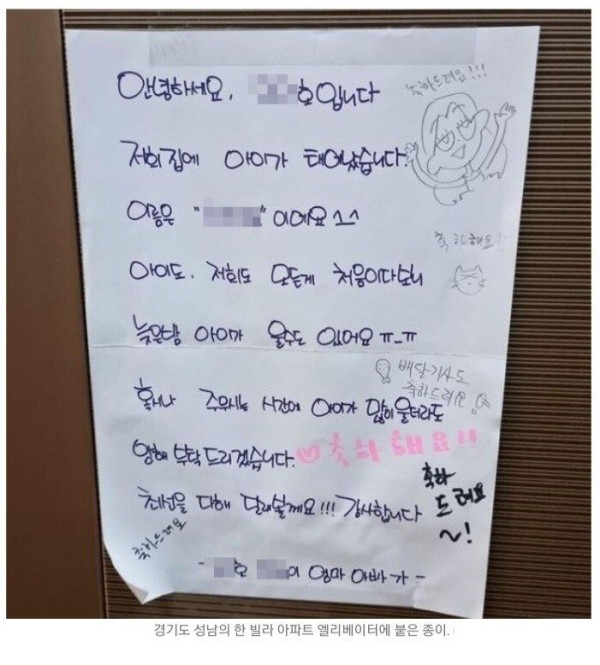 안녕하세요. 호입니다
축하드려요!!!
저희 집에 아이가 태어났습니다.
이름은 " "이에요 ^^
축하해요!!
아이도, 저희도 모든게 처음이다보니
늦은밤 아이가 울수도 있어요 ㅠ_ㅠ
배달기사도
축하드려요
혹시나 주무시는 시간에 아이가 많이 울더라도
양해 부탁 드리겠습니다.
♡축하해요!!
최선을 다해 달래볼게요!!! 감사합니다
축하
드려요
~!
축하드려요
- 호 이 엄마 아빠가 -
경기도 성남의 한 빌라 아파트 엘리베이터에 붙은 종이.